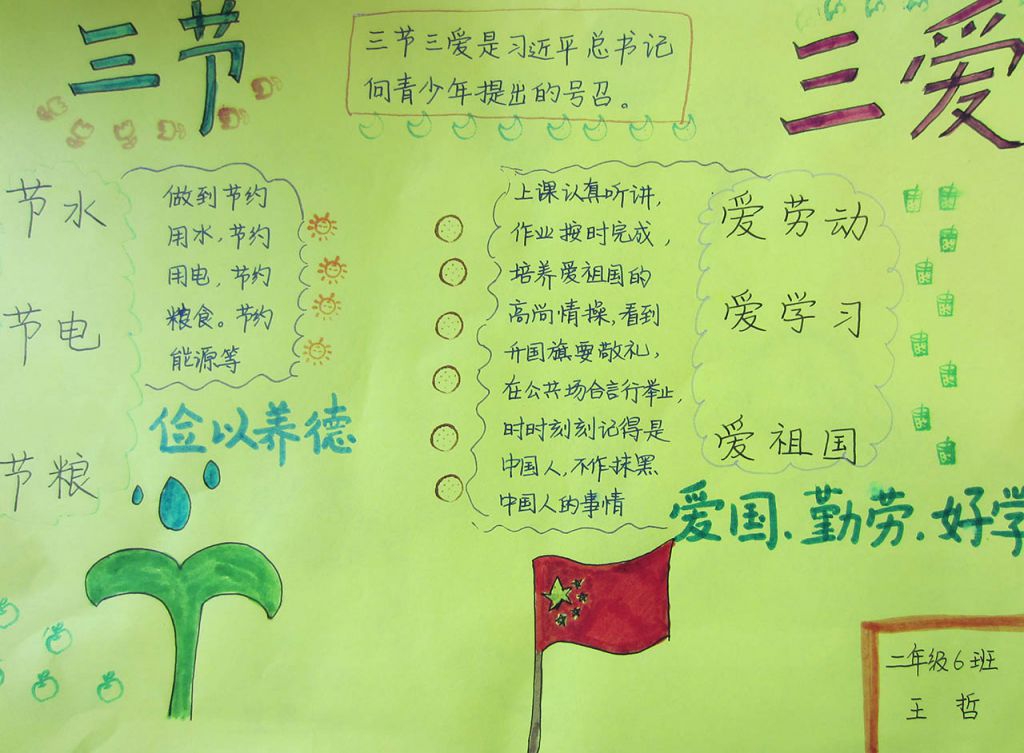 三节
三节三爱是习近平总书记
向青少年提出的号召。
三爱
节水
节电
节粮
做到节约
用水,节约
用电,节约
粮食。节约
能源等
俭以养德
上课认真听讲,
作业按时完成,
培养爱祖国的
高尚情操,看到
升国旗要敬礼,
在公共场合言行举止,
时时刻刻记得是
中国人,不作抹黑
中国人的事情
爱劳动
爱学习
爱祖国
爱国、勤劳、好学
二年级6班
王哲